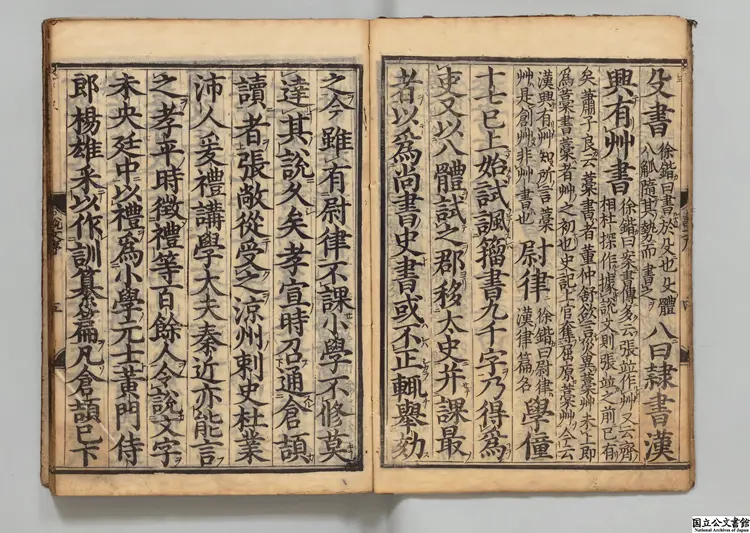 殳書徐鍇曰書於殳也殳體八觚隨其勢而書之八曰隷書漢
興有艸書徐鍇曰案書傳多云張竝作艸又云齊相杜探作據說文則張竝之前已有
矣蕭子良云藁書者董仲舒欲言灾異藁艸未上即
爲藁書藁者艸之初也史記上官奪屈原藁艸今云
漢興有艸知所言藁艸是創艸非艸書也尉律徐鍇曰尉律漢律篇名學僮
十七已上始試諷籀書九千字乃得爲
吏又以八體試之郡移太史并課最
者以爲尚書史書或不正輒舉劾
之今雖有尉律不課小學不修莫
達其說久矣孝宣時召通倉頡
讀者張敞從受之涼州刺史杜業
沛人爰禮講學大夫秦近亦能言
之孝平時徵禮等百餘人令說文字
未央廷中以禮爲小學元士黃門侍
郎楊雄采以作訓纂篇凡倉頡已下
国立公文書館
National Archives of Japan